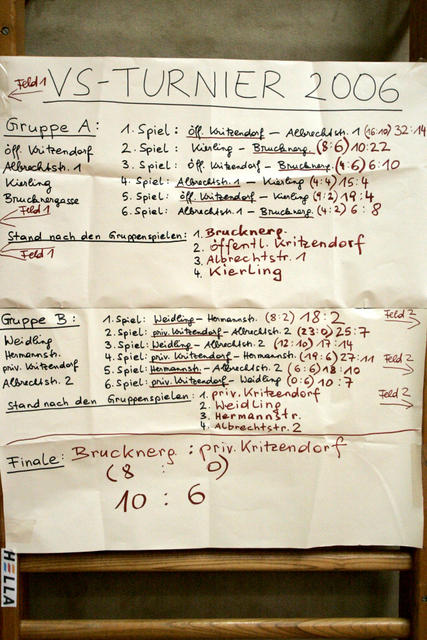 Feld 1
VS-TURNIER 2006
Gruppe A:
Öff. Kritzendorf
Albrechtstr. 1
Kierling
Brucknergasse
1. Spiel: Öff. Kritzendorf - Albrechtstr. 1 (16:10) 32:14
2. Spiel: Kierling - Brucknerg. (8:6) 10:22
3. Spiel: Öff. Kritzendorf - Brucknerg. (4:6) 6:10
4. Spiel: Albrechtstr. 1 - Kierling (4:4) 15:4
5. Spiel: Öff. Kritzendorf - Kierling (9:2) 19:4
6. Spiel: Albrechtstr. 1 - Brucknerg. (4:2) 6:8
Feld 1
Stand nach den Gruppenspielen:
1. Brucknerg.
2. Öffentl. Kritzendorf
3. Albrechtstr. 1
4. Kierling
Feld 1
Gruppe B:
Weidling
Hermannstr.
priv. Kritzendorf
Albrechtstr. 2
1. Spiel: Weidling - Hermannstr. (8:2) 18:2
2. Spiel: priv. Kritzendorf - Albrechtstr. 2 (23:0) 25:7
3. Spiel: Weidling - Albrechtstr. 2 (12:10) 17:14
4. Spiel: priv. Kritzendorf - Hermannstr. (19:6) 27:11
5. Spiel: Hermannstr. - Albrechtstr. 2 (6:6) 18:10
6. Spiel: priv. Kritzendorf - Weidling (0:6) 10:7
Feld 2
Feld 2
Feld 2
Stand nach den Gruppenspielen:
1. priv. Kritzendorf
2. Weidling
3. Hermannstr.
4. Albrechtstr. 2
Finale: Brucknerg : priv. Kritzendorf
(8 : 0)
10 : 6
HELLA